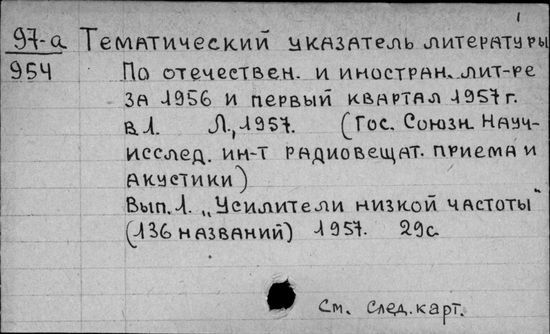 1
97-а Тематический указатель литературы
954 По отечествен. и иностран. лит-ре
за 1956 и первый квартал 1957 г.
в.1. Л., 1957. (Гос. Союзн. науч-
исслед. ин-т радиовещат. приема и
акустики)
Вып. 1. „Усилители низкой частоты"
(136 названий) 1957. 29с.
См. след. карт.